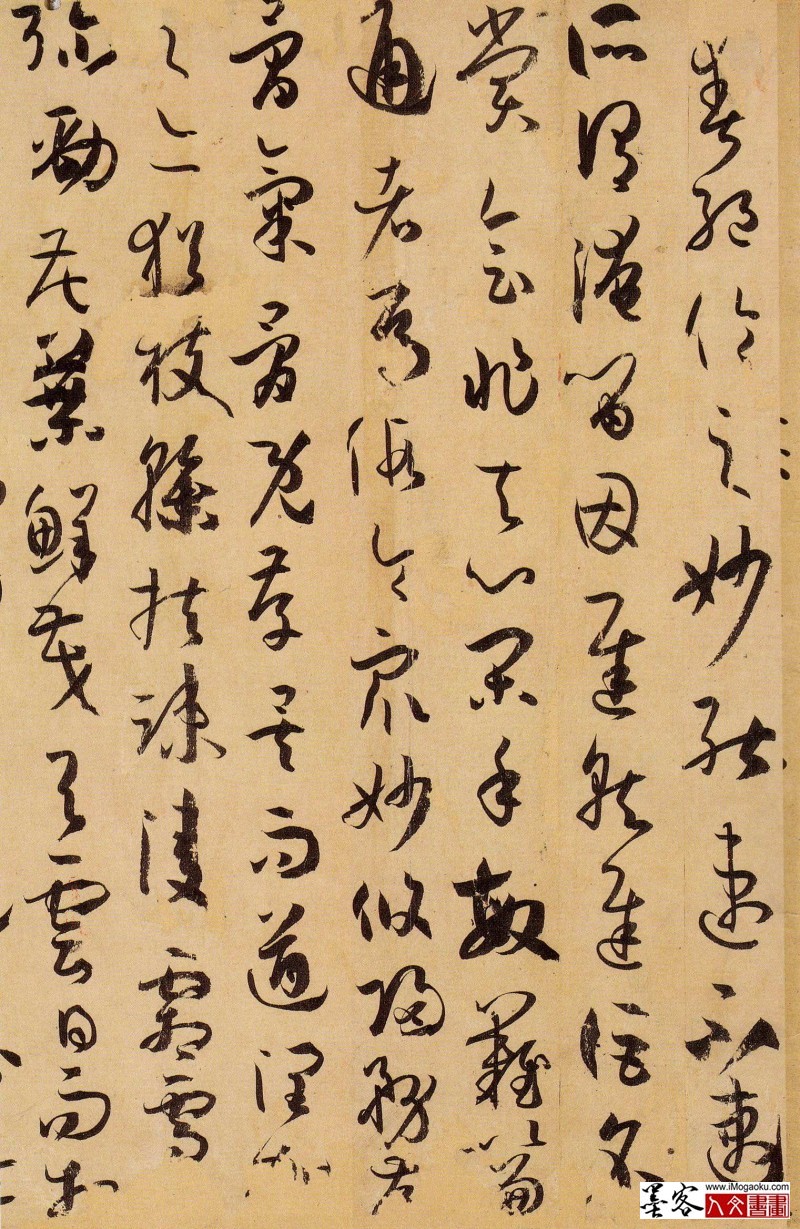 爽絕倫之妙能速不速
所謂淹留因遲就遲詎名
賞會非夫心閑手敏難以兼
通者焉假令眾妙攸歸務存
骨氣骨既存矣而遒潤加
之亦猶枝幹扶疎凌霜雪
弥勁花葉鮮茂與雲日而相
墨客
www.iMogaoku.com
人文書畫